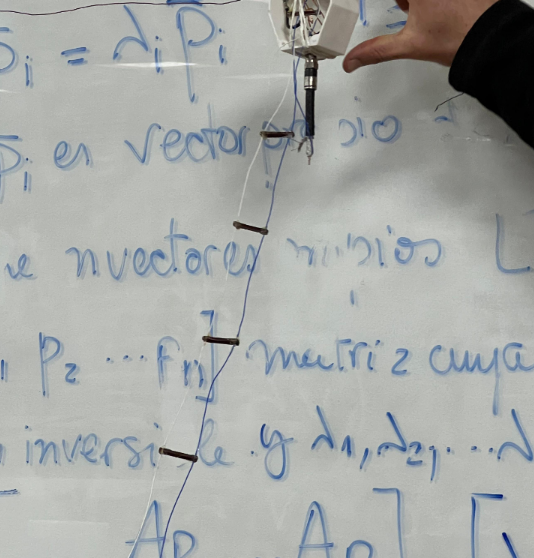 p̄i = λi p̄i
p̄i es vector
n vectores
P2 ... Pn] matriz cuya
inversible y λ1, λ2, ... λ
Ap Ap] [